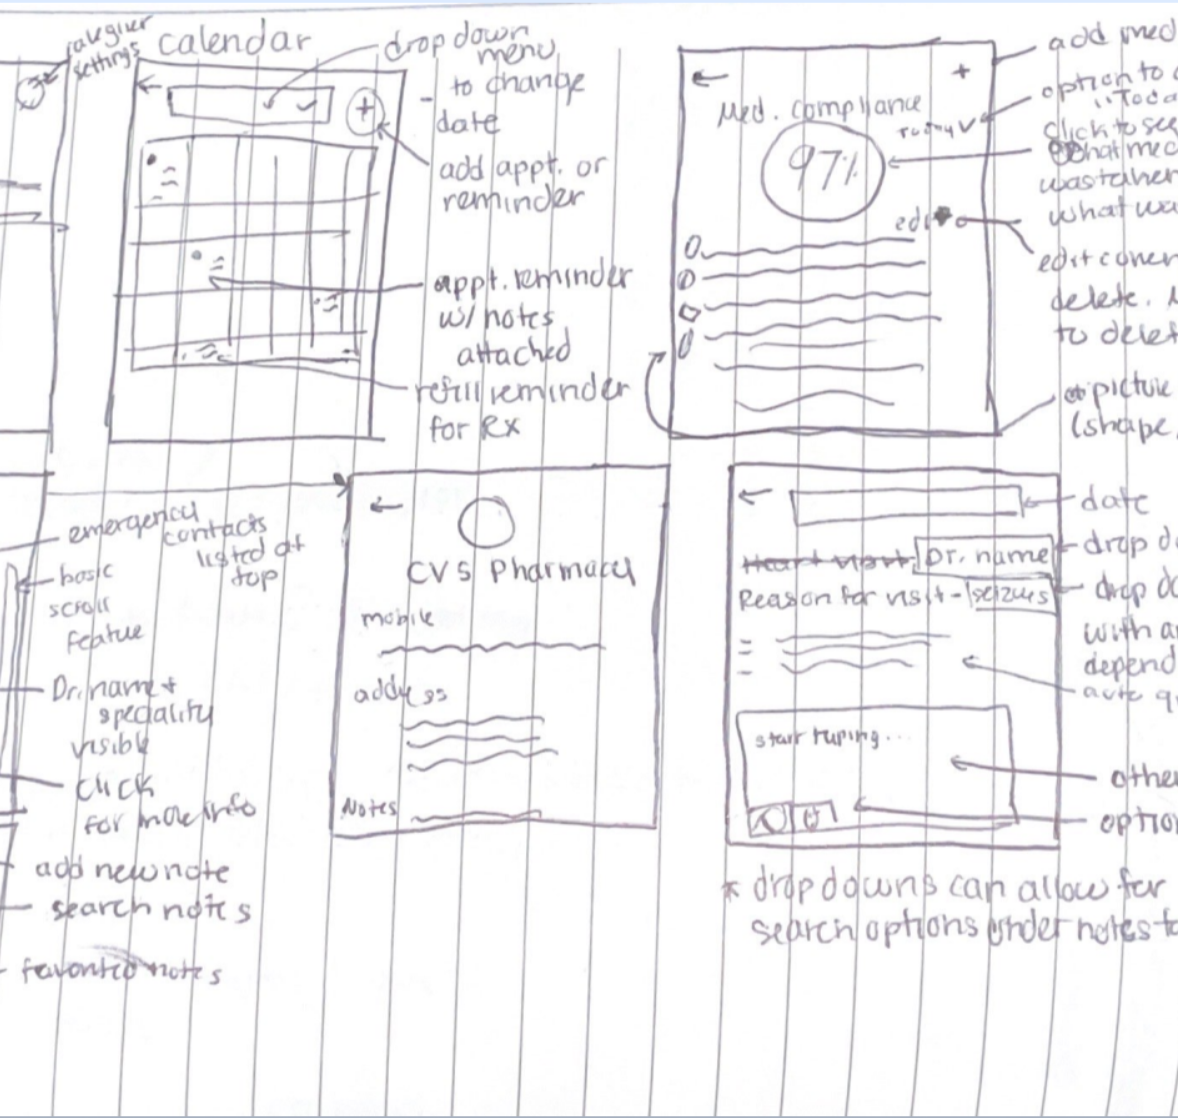 caregiver
settings
calendar
drop down
menu
- to change
date
add appt. or
reminder
appt. reminder
w/ notes
attached
refill reminder
for Rx
+
Med. compliance
today
97%
edit
+
add med
option to
"Toda
click to see
what mec
was taken
what wa
edit
delete.
to delet
picture
(shape,
emergency
contacts
listed at
top
basic
scroll
featue
Dr. name +
speciality
visible
click
for more info
add new note
search notes
favorited notes
CVS Pharmacy
mobile
address
Notes
Dr. name
Reason for visit - seizurs
start typing...
date
drop do
drop do
with a
depend
auto q
other
option
* drop downs can allow for
search options under notes t